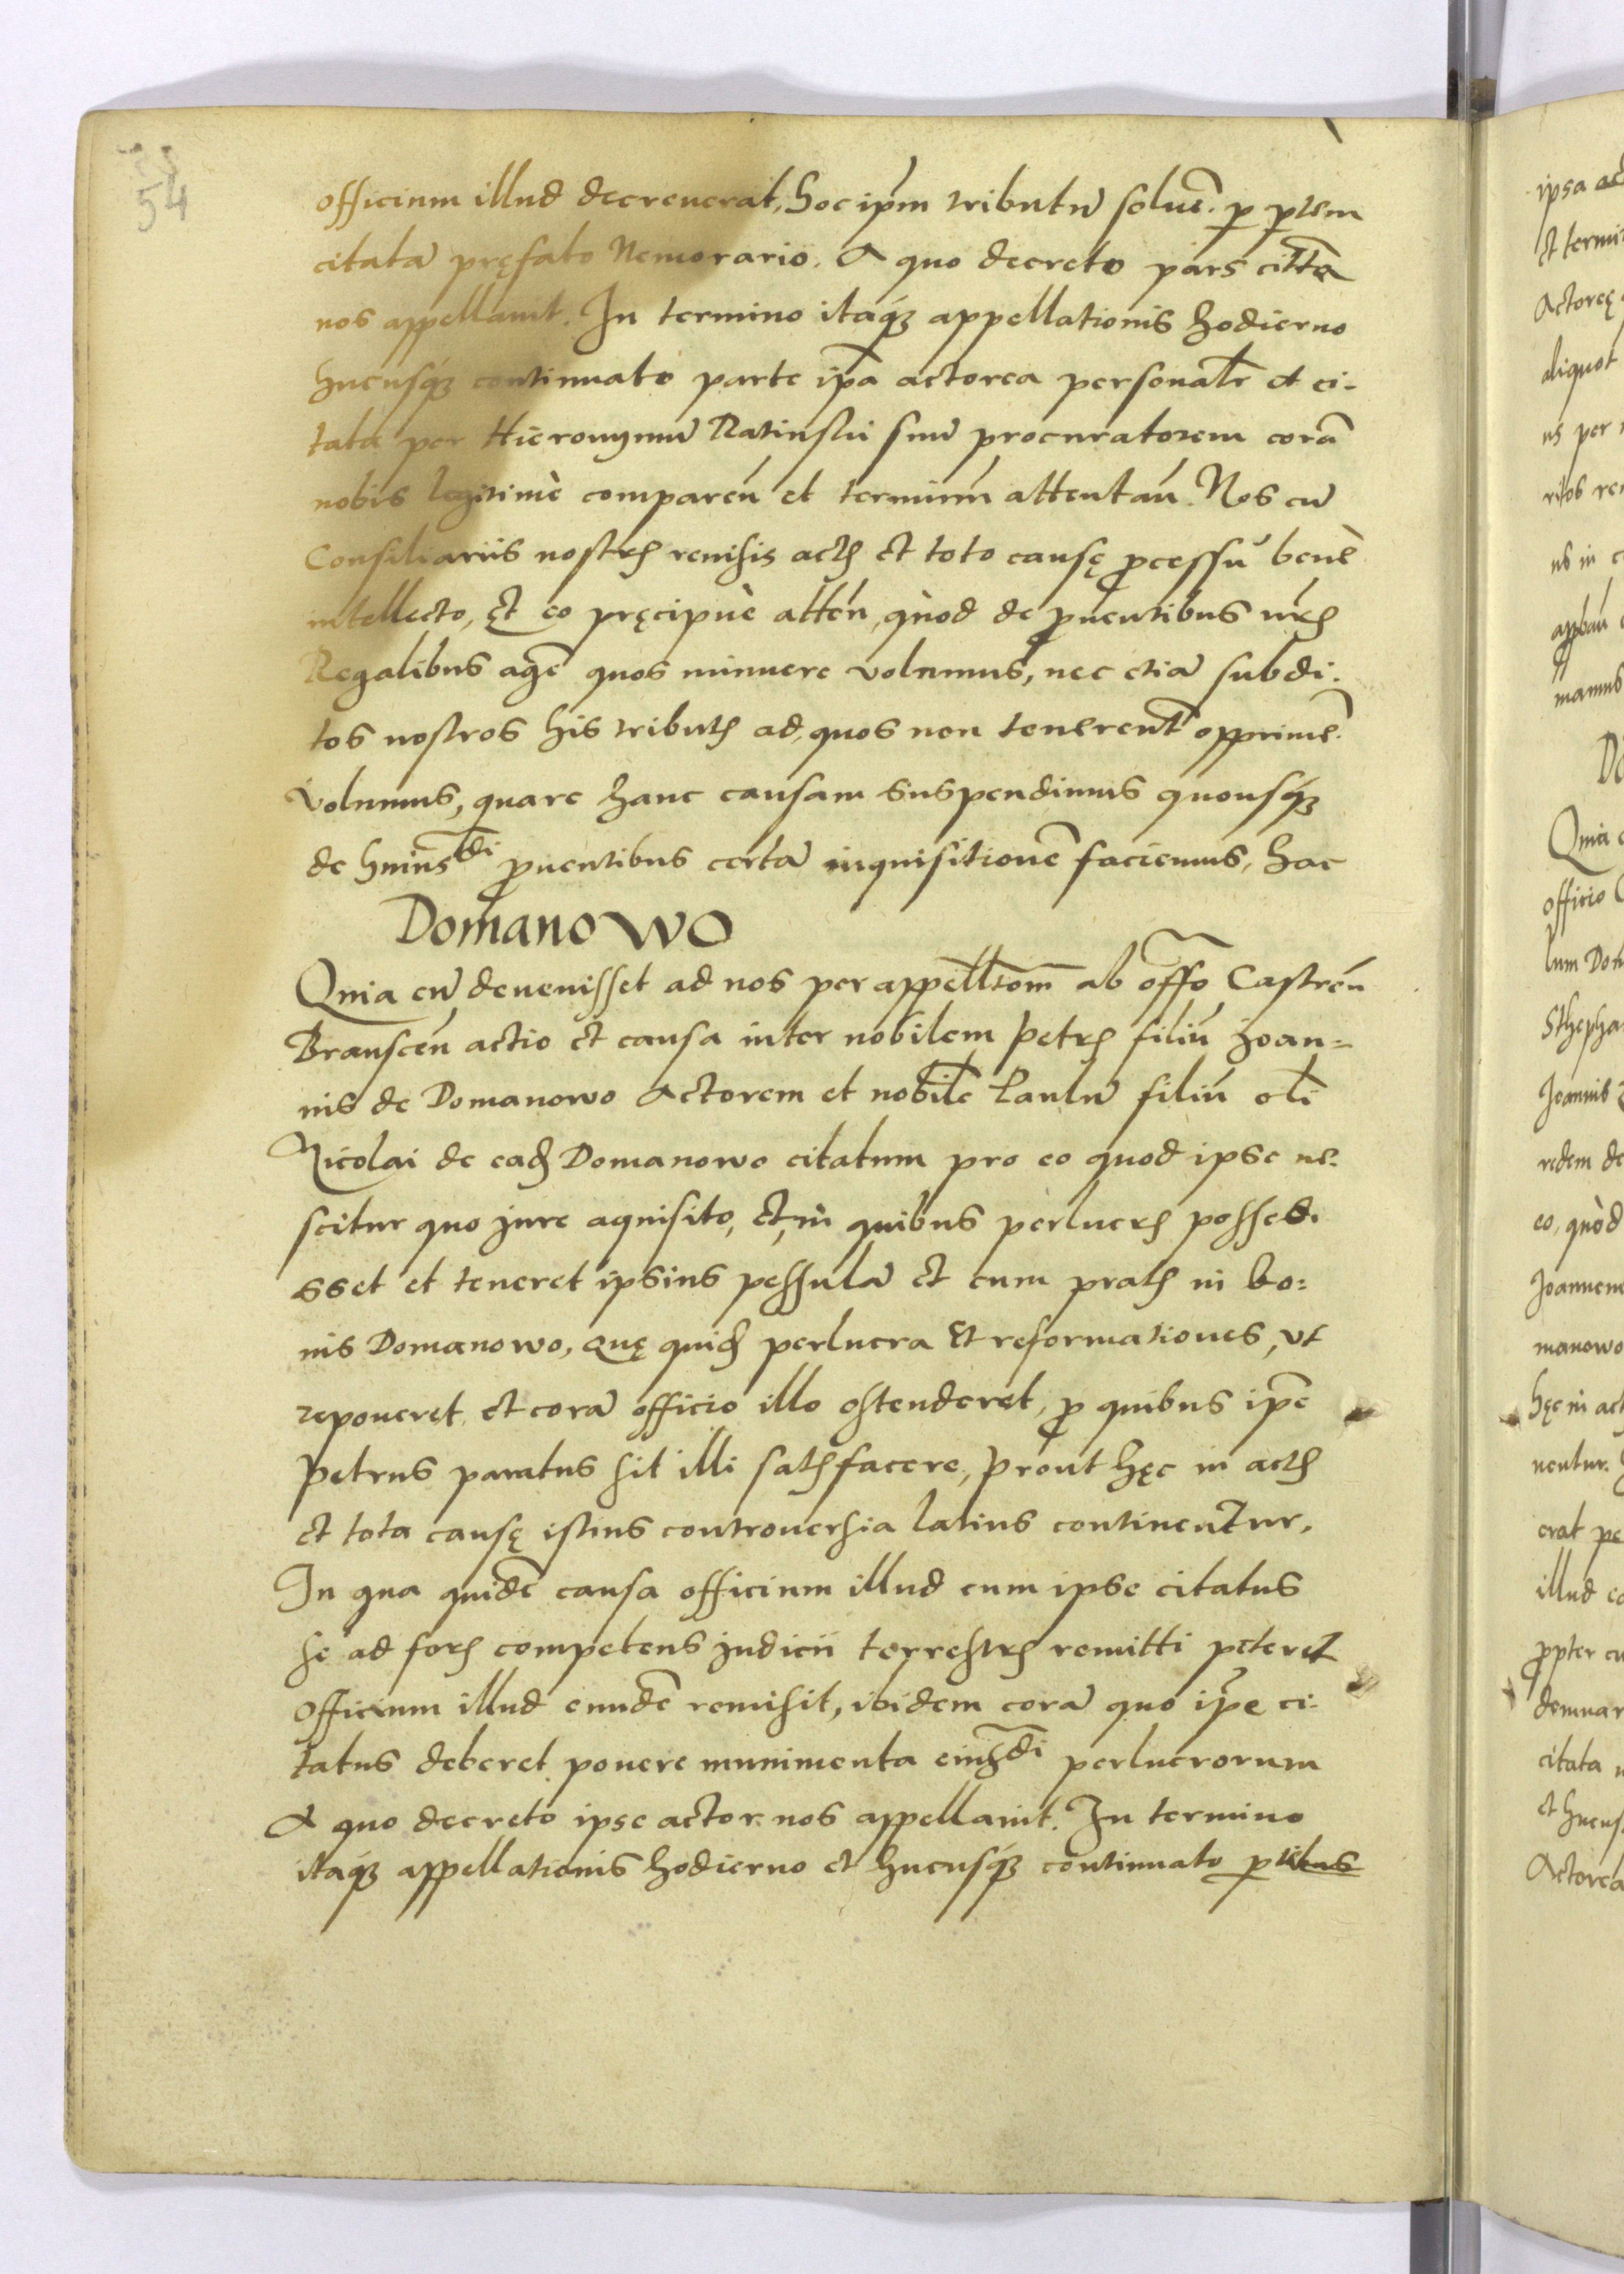 54
officium illud decreuerat, hoc ip̃m tributũ soluẽ. p ptem
citatã pręfato Nemorario. A quo decreto pars citta
nos appellauit. In termino itaq́ʒ appellationis hodierno
hucusq́ʒ continuato parte ip̃a actorea personalr̃ et ci-
tata per Hieronymũ Ratinskii suũ procuratorem corã
nobis legitimè comparen̄ et terminũ attentan̄. Nos cũ
Consiliariis nostrꝭ reuisis actꝭ et toto causę ꝓcessu benè
intellecto, Et eo pręcipuè atten̄, quòd de ꝓuentibus nr̃ꝭ
Regalibus agẽ quos minuere volumus, nec etiã subdi-
tos nostros his tributꝭ ad, quos non tenerent̃ opprimẽ.
volumus, quare hanc causam suspendimus quousq́ʒ
de huiusdi ꝓuentibus certã inquisitionẽ faciemus, hac
Domanowo
Quia cũ deuenisset ad nos per appelltom̃ ab offo Castren̄
Branscen̄ actio et causa inter nobilem Petrꝭ filiũ Joan=
nis de Domanowo Actorem et nobilẽ Paulũ filiũ oli
Nicolai de eadꝭ Domanowo citatum pro eo quod ipse ne-
scitur quo jure aquisito, et, in quibus perlucrꝭ possedi
sset et teneret ipsius pessulã et cum pratꝭ in bo:
nis Domanowo, quę quidꝭ perlucra et reformationes, vt
reponeret, et corã officio illo ostenderet, ꝓ quibus ip̃e
Petrus paratus sit illi satꝭfacere, prout hęc in actꝭ
et tota causę istius controuersia latius continentur,
In qua quidẽ causa officium illud cum ipse citatus
se ad forꝭ competens judicii terrestrꝭ remitti peteret
officium illud eundẽ remisit, ibidem corã quo ip̃e ci-
tatus deberet ponere munimenta eiusdi perlucrorum
A quo decreto ipse actor nos appellauit. In termino
itaq́ʒ appellationis hodierno et hucusq́ʒ continuato ptibus